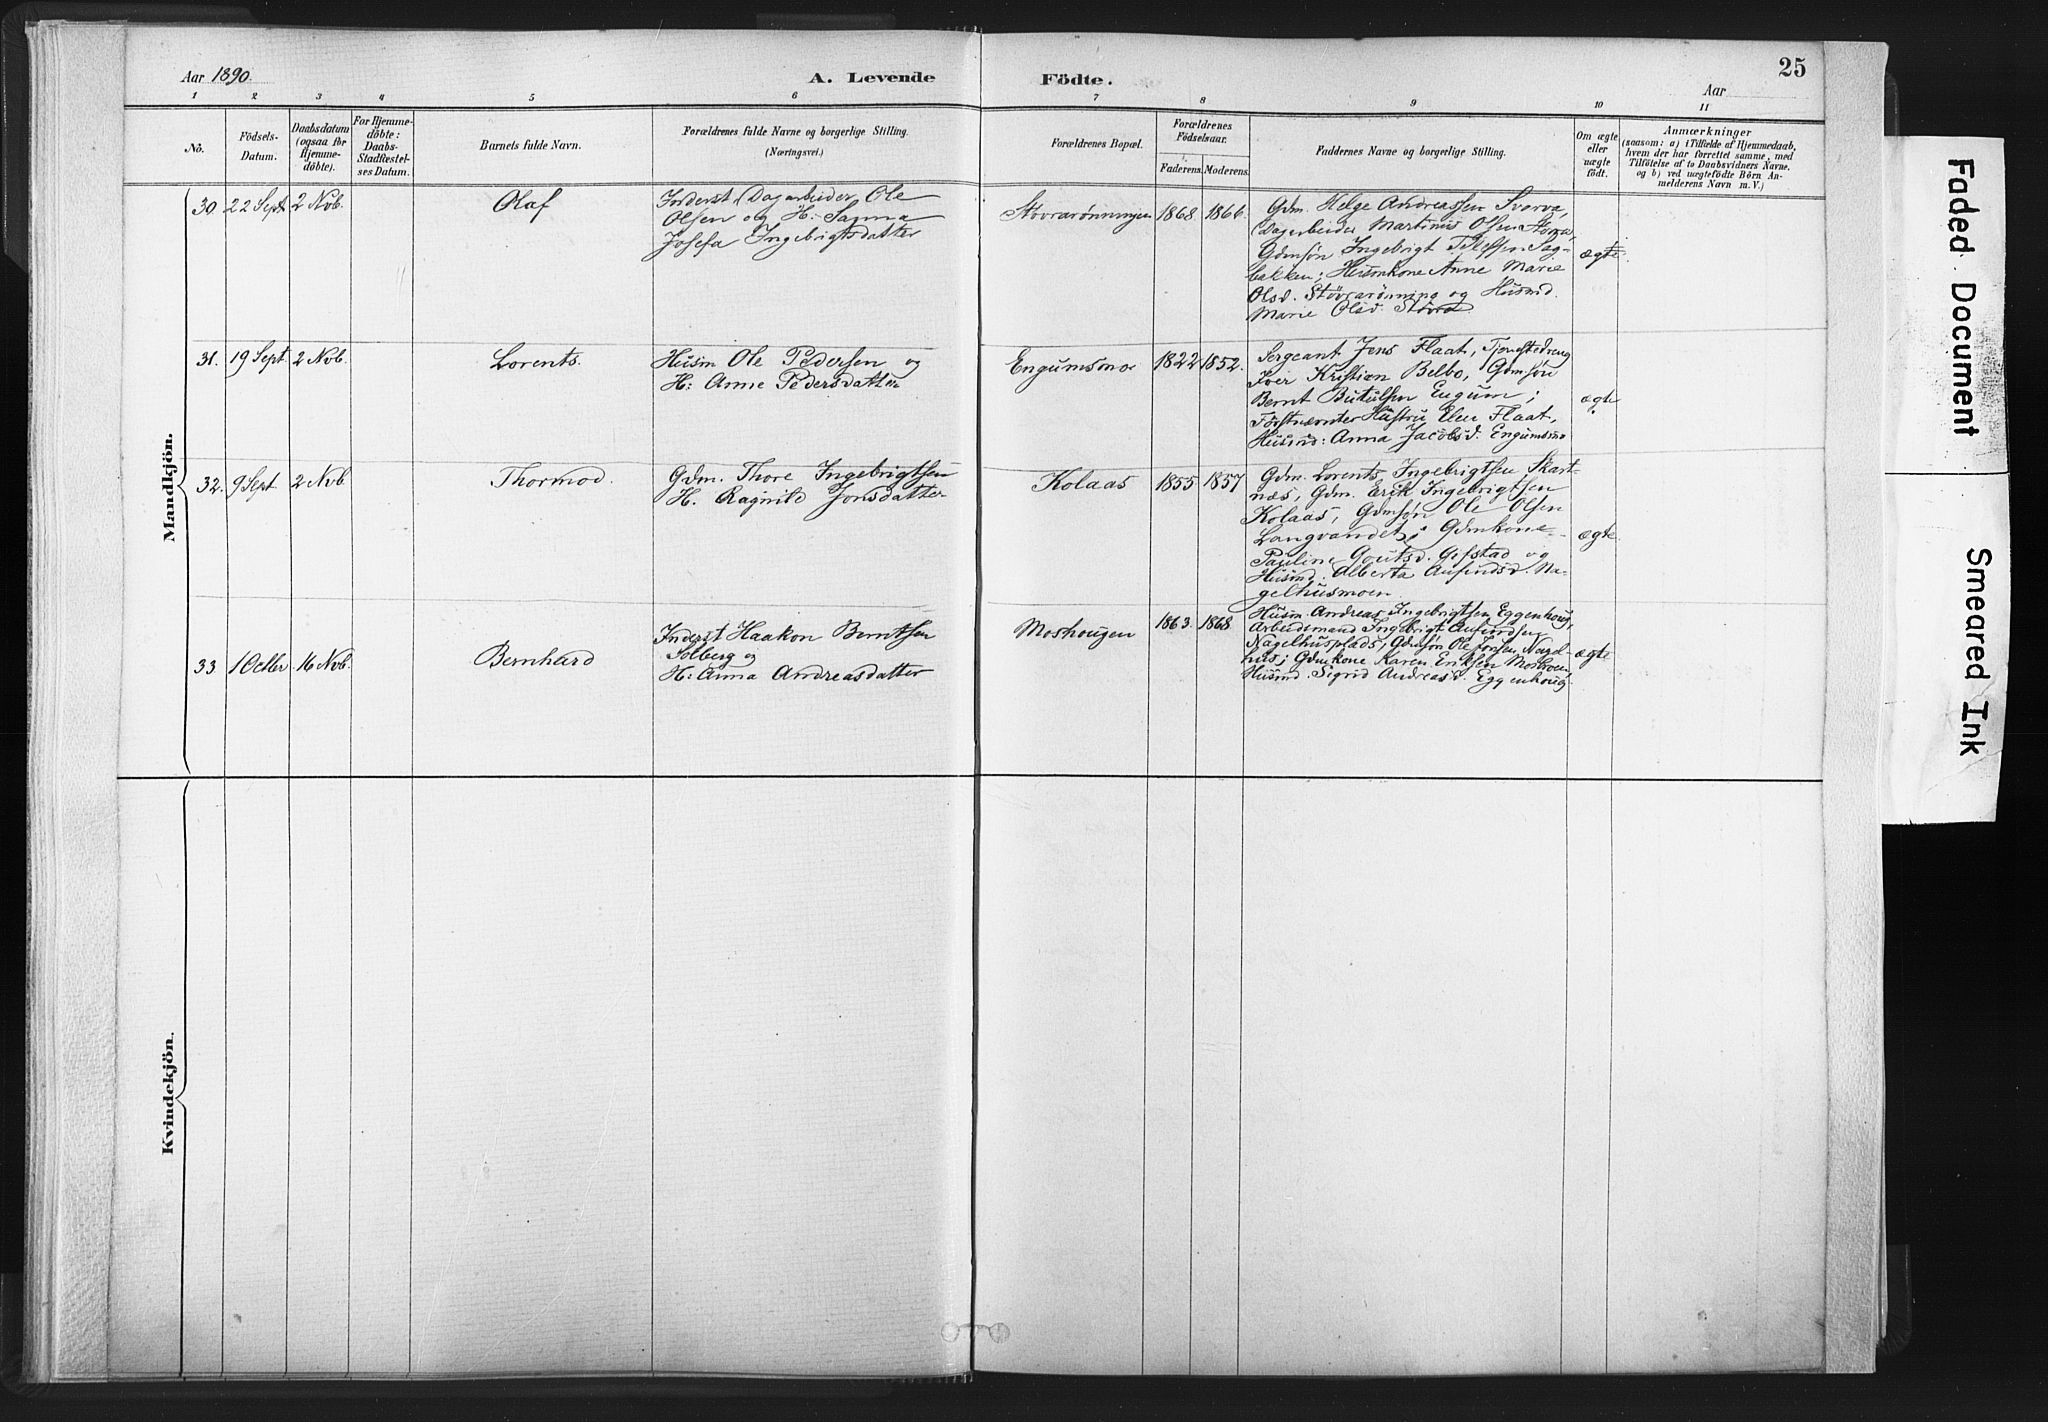 Aar 1890.
A. Levende Födte.
Aar
25
1 2 3 4 5 6 7 8 9 10 11
No.
Födsels-
Datum.
Daabsdatum
(ogsaa for
Hjemme-
döbte).
For Hjemme-
döbte:
Daabs-
StadfæsteI-
ses Datum.
Barnets fulde Navn.
Forældrenes fulde Navne og borgerlige Stilling.
(Næringsvei.)
Forældrenes Bopæl.
Forældrenes
Födselsaar.
Faderens. Moderens.
Faddernes Navne og borgerlige Stilling.
Om ægte
eller
uægte
födt.
Anmærkninger
(saasom: a) i Tilfælde af Hjemmedaab,
hvem der har forrettet samme, med
Tilföielse af to Daabsvidners Navne.
og b) ved uægtefödte Börn An-
melderens Navn m. V.)
Mandkjön.
30 22 Sept 2 Nov. Olaf
Inderst Dagarbeider Ole
Olsen og H: Sanna
Josefa Ingebrigtsdatter
Stövrarönningen 1868 1866.
Gdm. Helge Andreassen Svorva,
Dagarbeider Martinus Olsen
Gdmsön Ingebrigt Sag-
bakken; Husmkone Anne Marie
Olsd. Stövrarönning og Husmd.
Marie Olsd. Stövra
ægte.
31. 19 Sept. 2 Nov. Lorents.
Husm Ole Pedersen og
H: Anne Pedersdatter
Engumsmo 1822 1852.
Sergeant Jens Flaat, Tjenestedreng
Iver Kristian Belbo, Gdmsön
Bernt Engum;
Förstnævntes Hustru Elen Flaat,
Husmd: Anna Jacobsd. Engumsmo
ægte
32. 9 Sept 2 Nov Thormod.
Gdm. Thore Ingebrigtsen
H. Ragnild Jonsdatter
Kolaas 1855 1857
Gdm. Lorents Ingebrigtsen Skart-
næs, Gdm. Erik Ingebrigtsen
Kolaas, Gdmsön Ole Olsen
Langvandet; Gdmkone
Pauline Goutsd. Gifstad og
Husmd. Alberta Anfindsd. Na-
gelhusmoen
ægte.
33 1 Octbr 16 Nov. Bernhard
Inderst Haakon Berntsen
Solberg og
H: Anna Andreasdatter
Moshougen 1863. 1868
Husm. Andreas Ingebrigtsen Eggenhoug,
Arbeidsmand Ingebrigt Anfindsen
Nagelhusplads, Gdmsön Ole Jonsen Nagel-
hus; Gdmkone Karen Eriksen Moshoen,
Husmd. Sigrid Andreasd. Eggenhoug
ægte
Kvindekjön.
Faded Document
Smeared Ink